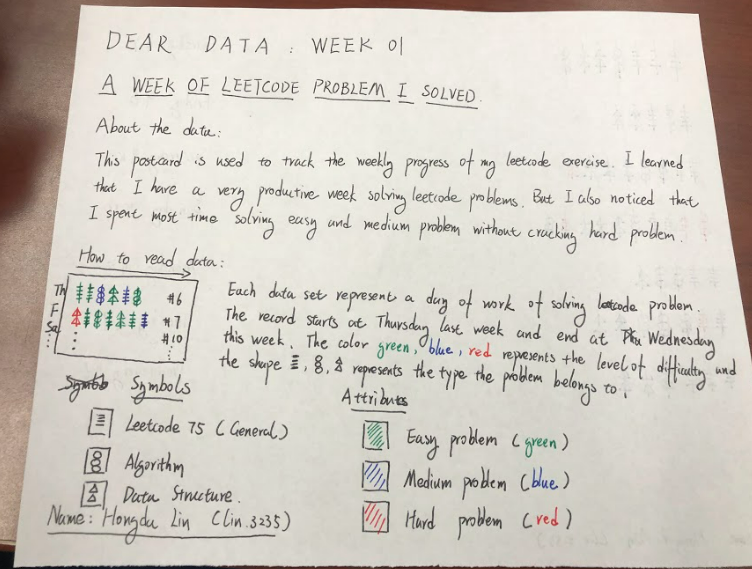 DEAR DATA : WEEK 01
A WEEK OF LEETCODE PROBLEM I SOLVED.
About the data:
This postcard is used to track the weekly progress of my leetcode exercise. I learned
that I have a very productive week solving leetcode problems. But I also noticed that
I spent most time solving easy and medium problem without cracking hard problem.
How to read data:
Th #6
F #7
Sa #10
Each data set represent a day of work of solving leetcode problem.
The record starts at Thursday last week and end at Wednesday
this week. The color green, blue, red represents the level of difficulty and
the shape , , represents the type the problem belongs to.
Symbols
Leetcode 75 (General)
Algorithm
Data Structure.
Attributes
Easy problem (green)
Medium problem (blue)
Hard problem (red)
Name: Hongda Lin (lin.3235)